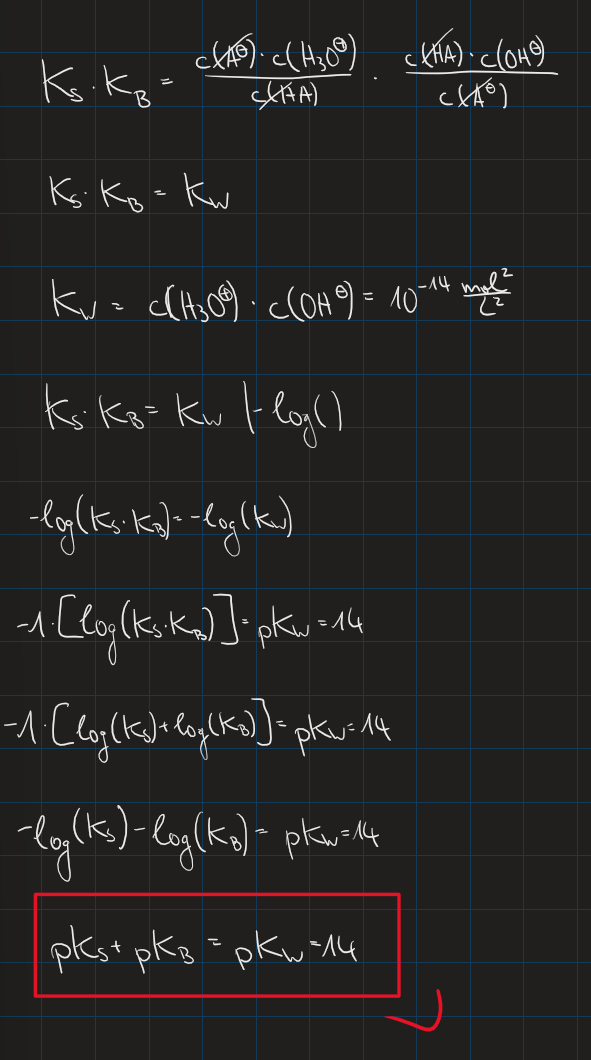 K_S · K_B = c(A⊖) · c(H₃O⊕) / c(HA) · c(HA) · c(OH⊖) / c(A⊖)
K_S · K_B = K_W
K_W = c(H₃O⊕) · c(OH⊖) = 10⁻¹⁴ mol²/L²
K_S · K_B = K_W |-log()
-log(K_S · K_B) = -log(K_W)
-1 · [log(K_S · K_B)] = pK_W = 14
-1 · [log(K_S) + log(K_B)] = pK_W = 14
-log(K_S) - log(K_B) = pK_W = 14
pK_S + pK_B = pK_W = 14